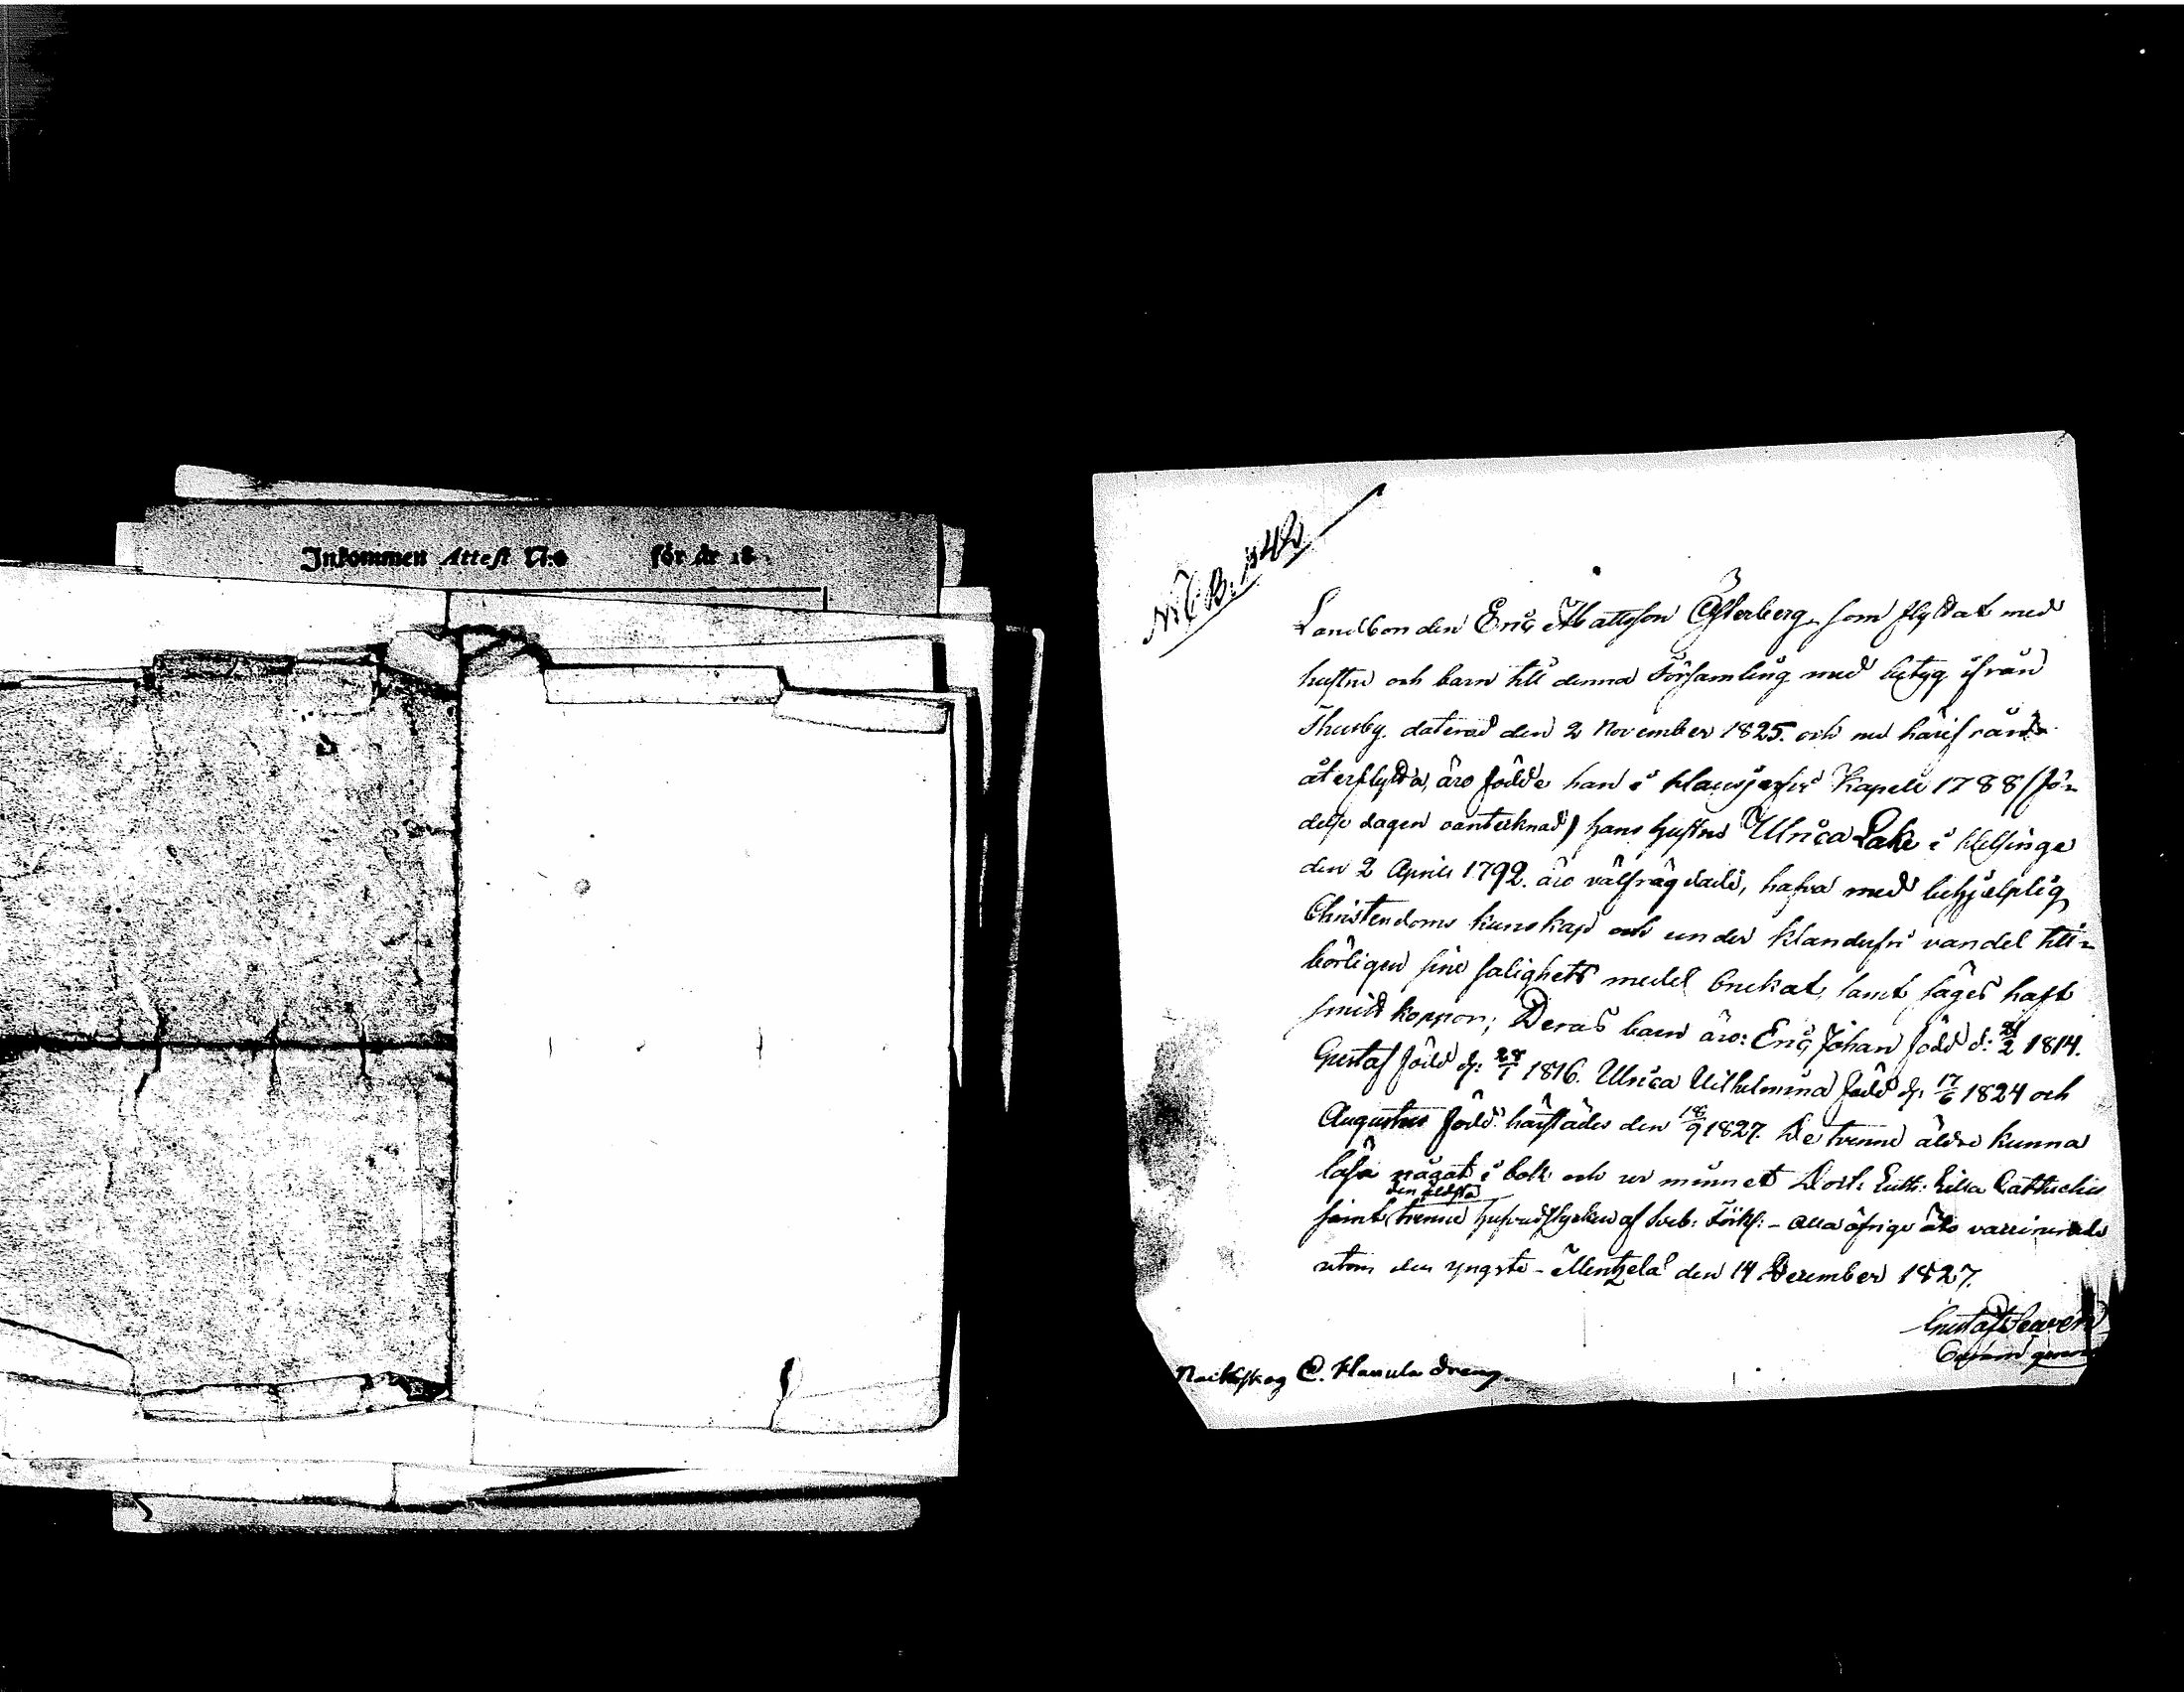 Inkommen Attest N:o för år 18
M.C.B. 1842
Landbonden Eric Mattsson Österberg, som flyttat med
hustru och barn till denna Församling med betyg ifrån
Thusby daterad den 2 November 1825. och nu härifrån
återflytta, äro födde han i Klausjerfvi Kapell 1788 (fö-
delse dagen oantecknad) hans hustru Ulrica Lake i Helsinge
den 2 April 1792. äro välfrägdade, hafva med behjelplig
Christendoms kunskap och under klanderfri vandel till-
börligen sine salighets medel brukat, samt säges haft
smitt koppor; Deras barn äro: Eric Johan född d: 2 1814.
Gustaf född d: 28/1 1816. Ulrica Wilhelmina född d: 17/6 1824 och
Augustus född härstädes den 18/9 1827. De trenne äldre kunna
läsa något i bok och ur minnet Doct: Luth: Lilla Cathechis
den äldsta
samt trenne hufvudstycken af Sveb: Förkl: - Alla öfrige äro vaccinerade
utom den yngste - Mentzelä den 14 December 1827.
Gustaf
Nackskog C. Hanula dreng.